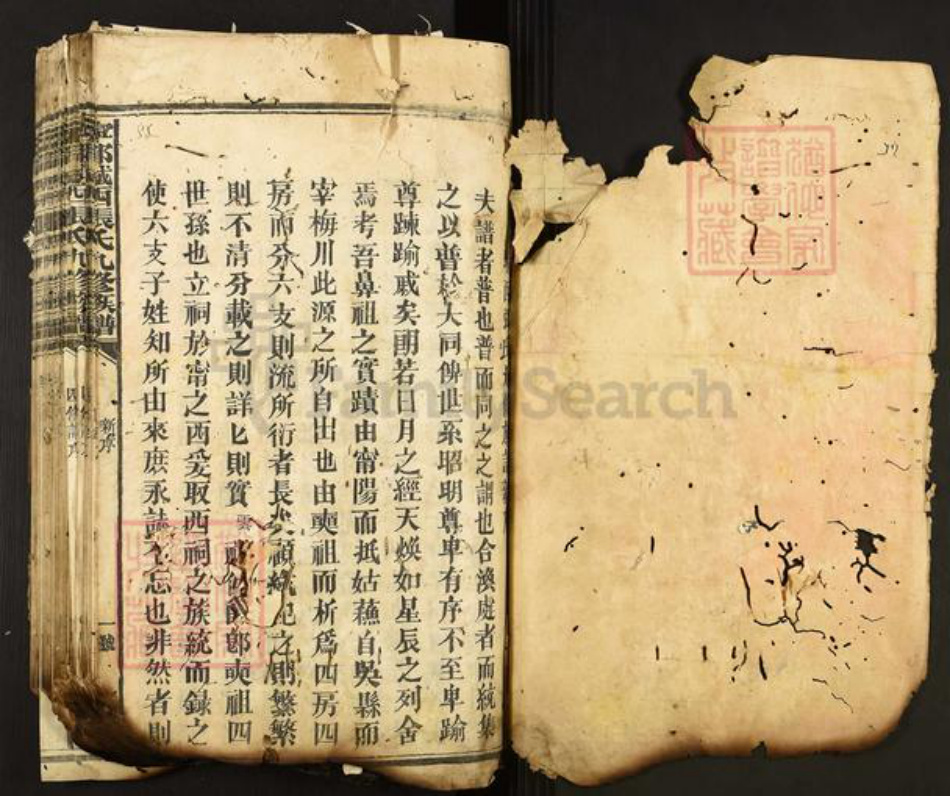 夫譜者普也普而同之之謂也合渙處者而統集
之以普於大同俾世系昭明尊卑有序不至卑踰
尊踈踰戚矣朙若日月之經天煥如星辰之列舍
焉考吾鼻祖之實蹟由甯陽而抵姑蘓自吳縣而
宰梅川此源之所自出也由奭祖而析爲四房四
房而分六支則流所衍者長矣顧統記之則繁繁
則不清分載之則詳匕則實雲鄮奭祖四
世孫也立祠於甯之西爰取西祠之族統而録之
使六支子姓知所由來庶永誌不忘也非然者則
甯都城西張氏九修族譜
新序
一號
猶他家
譜學會
收藏
FamilySearch